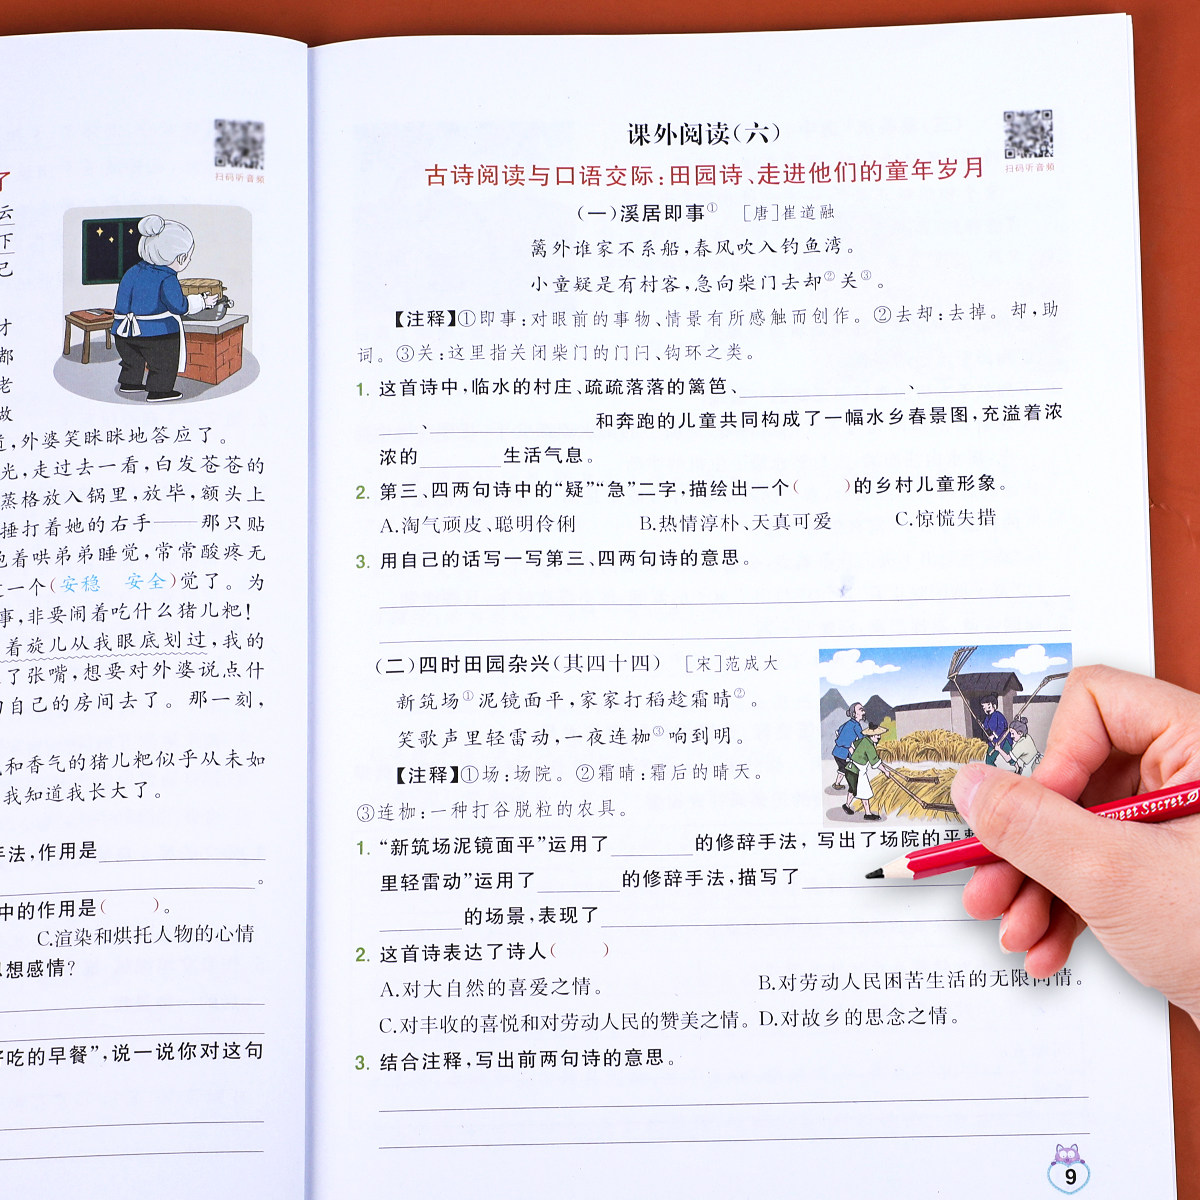 扫码听音频
了
云
下
己
才
都
老
做
道,外婆笑眯眯地答应了。
光,走过去一看,白发苍苍的
蒸格放入锅里,放毕,额头上
捶打着她的右手——那只贴
抱着哄弟弟睡觉,常常酸疼无
一个(安稳 安全)觉了。为
事,非要闹着吃什么猪儿粑!
着旋儿从我眼底划过,我的
了张嘴,想要对外婆说点什
自己的房间去了。那一刻,
和香气的猪儿粑似乎从未如
我知道我长大了。
法,作用是
。
中的作用是( )。
C.渲染和烘托人物的心情
思想感情?
好吃的早餐”,说一说你对这句
课外阅读(六)
扫码听音频
古诗阅读与口语交际:田园诗、走进他们的童年岁月
(一)溪居即事① [唐]崔道融
篱外谁家不系船,春风吹入钓鱼湾。
小童疑是有村客,急向柴门去却②关③。
【注释】①即事:对眼前的事物、情景有所感触而创作。②去却:去掉。却,助
词。③关:这里指关闭柴门的门闩、钩环之类。
1. 这首诗中,临水的村庄、疏疏落落的篱笆、________、________
____、________和奔跑的儿童共同构成了一幅水乡春景图,充溢着浓
浓的________生活气息。
2. 第三、四两句诗中的“疑”“急”二字,描绘出一个( )的乡村儿童形象。
A.淘气顽皮、聪明伶俐 B.热情淳朴、天真可爱 C.惊慌失措
3. 用自己的话写一写第三、四两句诗的意思。
(二)四时田园杂兴(其四十四) [宋]范成大
新筑场①泥镜面平,家家打稻趁霜晴②。
笑歌声里轻雷动,一夜连枷③响到明。
【注释】①场:场院。②霜晴:霜后的晴天。
③连枷:一种打谷脱粒的农具。
1. “新筑场泥镜面平”运用了________的修辞手法,写出了场院的平
里轻雷动”运用了________的修辞手法,描写了________
________的场景,表现了________
2. 这首诗表达了诗人( )
A.对大自然的喜爱之情。 B.对劳动人民困苦生活的无限同情。
C.对丰收的喜悦和对劳动人民的赞美之情。 D.对故乡的思念之情。
3. 结合注释,写出前两句诗的意思。
Sweet Secret
9